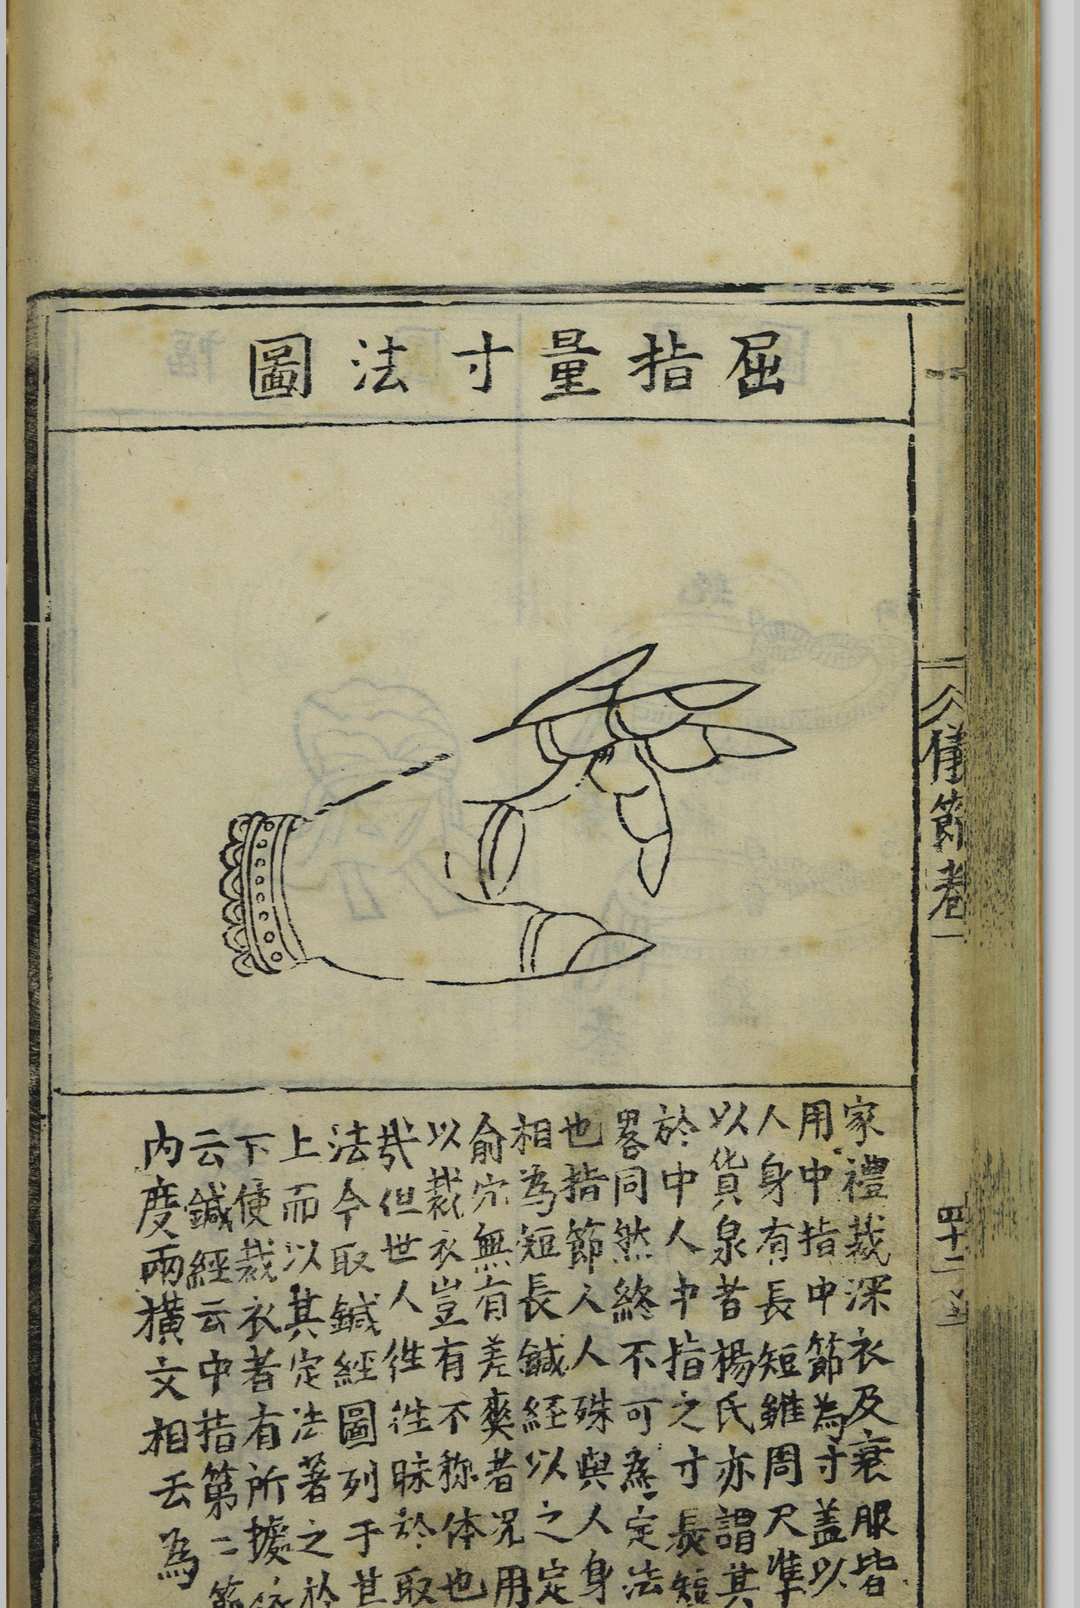 屈指量寸法圖
家禮裁深衣及衰服皆
用中指中節為寸盖以
人身有長短雖周尺準
以貨泉者楊氏亦謂其
於中人中指之寸長短
畧同然終不可為定法
也指節人人殊與人身
相為短長鍼経以之定
俞穴無有差爽者况用
以裁衣豈有不称体也
㢤但世人徃徃昧於取
法今取鍼經圖列于其
上而以其定法著之於
下使裁衣者有所據依
云鍼經云中指第二節
内度兩横文相去為
儀節卷一
四十二